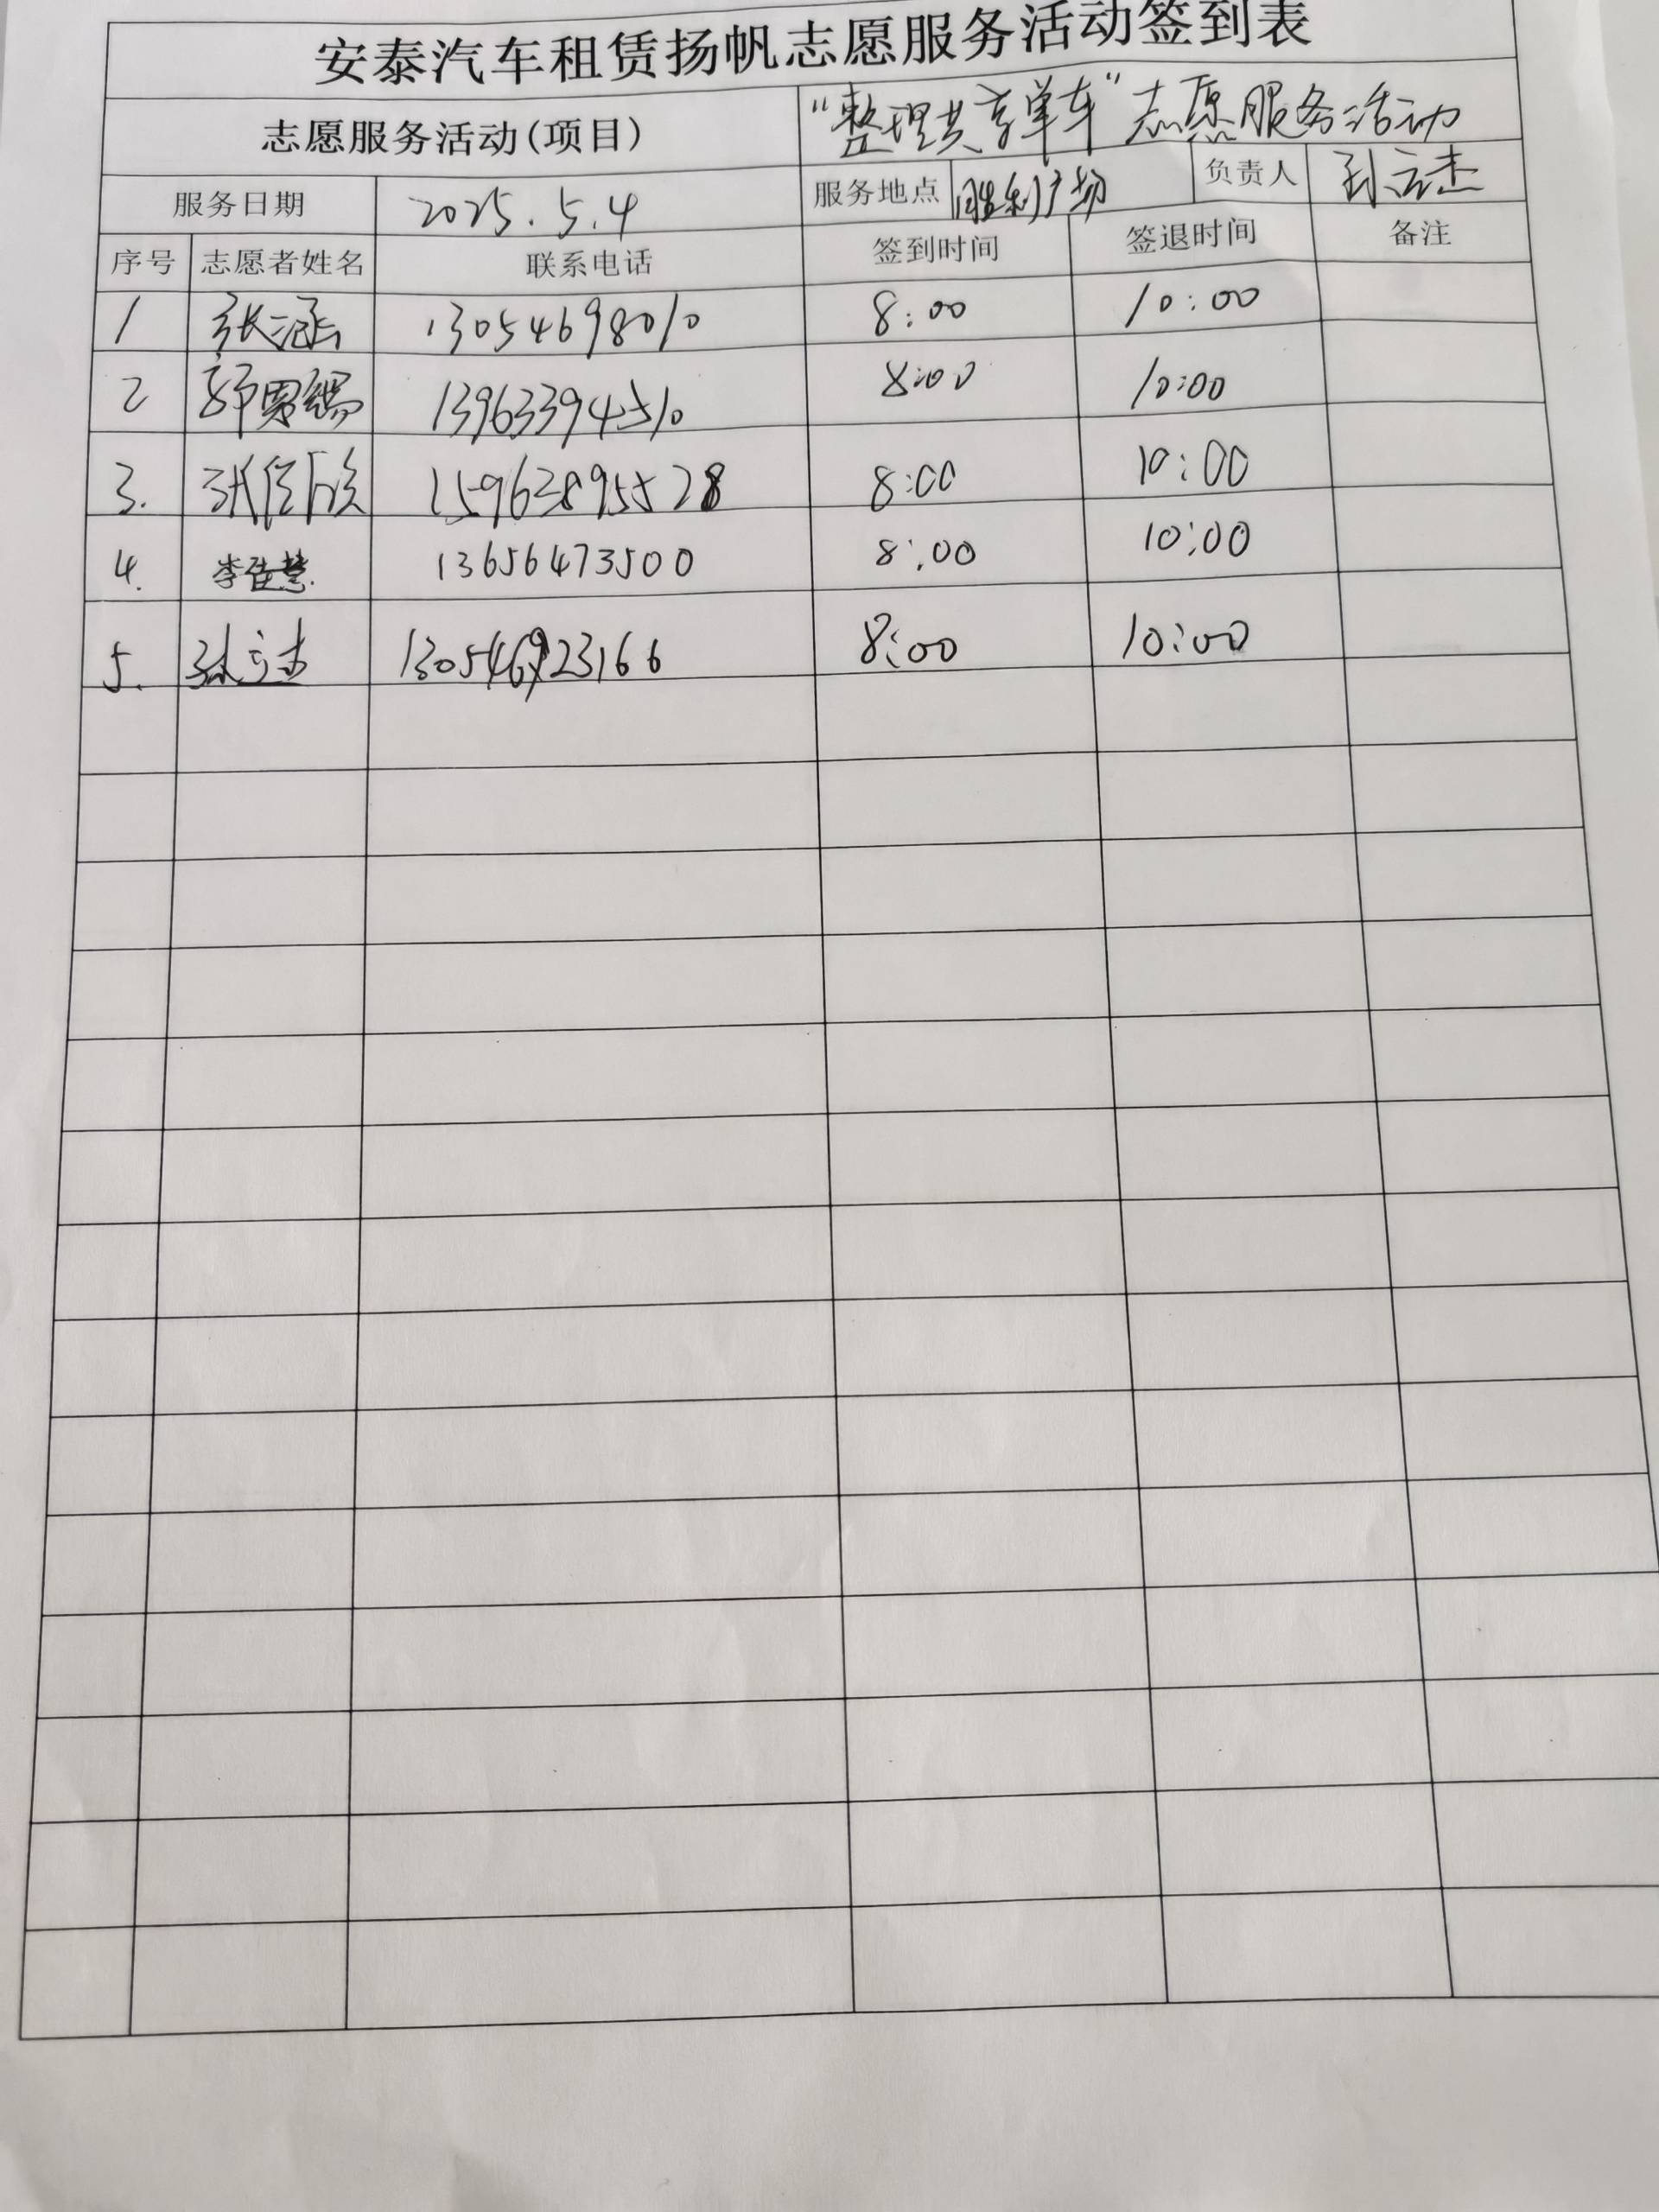 安泰汽车租赁扬帆志愿服务活动签到表
志愿服务活动(项目) "整理共享单车"志愿服务活动
服务日期 2025.5.4 服务地点 胜利广场 负责人
序号 志愿者姓名 联系电话 签到时间 签退时间 备注
1 张涵 13054698010 8:00 10:00
2 13963394510 8:00 10:00
3. 15963895528 8:00 10:00
4. 李佳慧 13656473500 8:00 10:00
5. 8:00 10:00